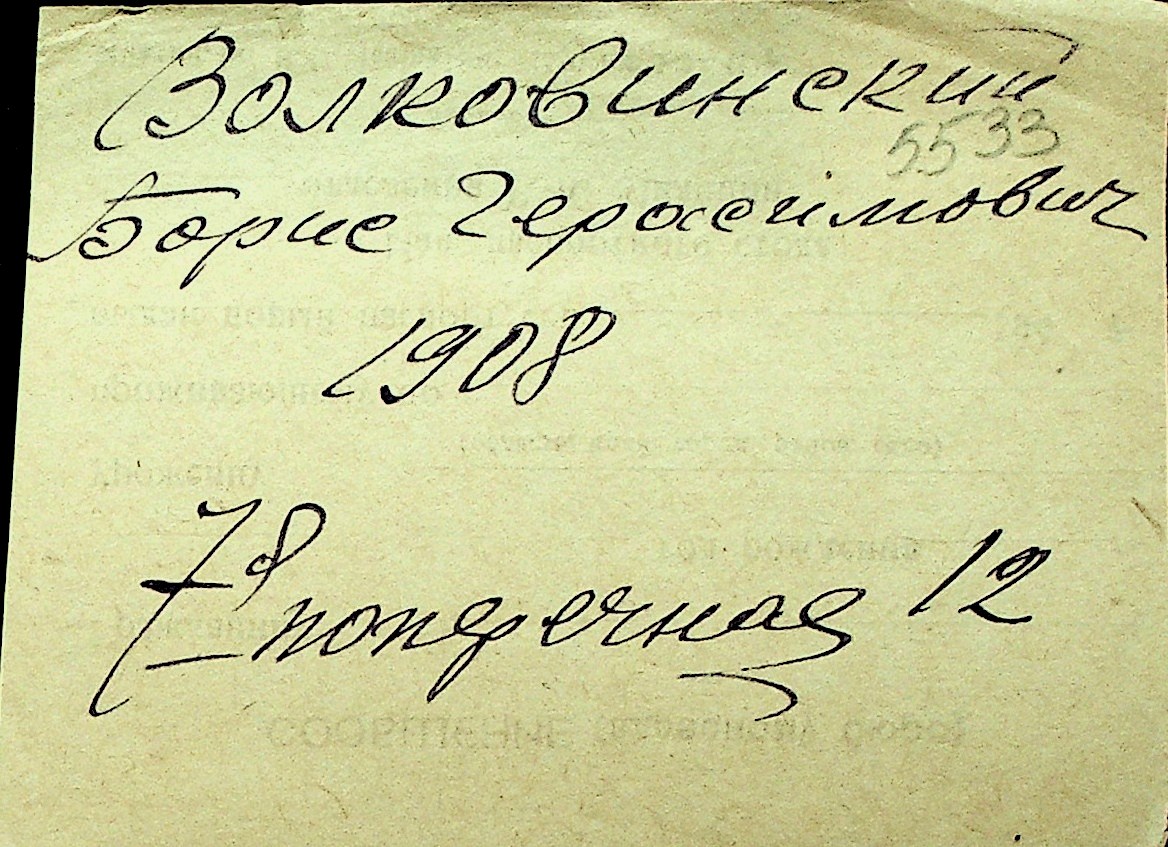 Волковинский
5533
Борис Герасимович
1908
7я поперечная 12